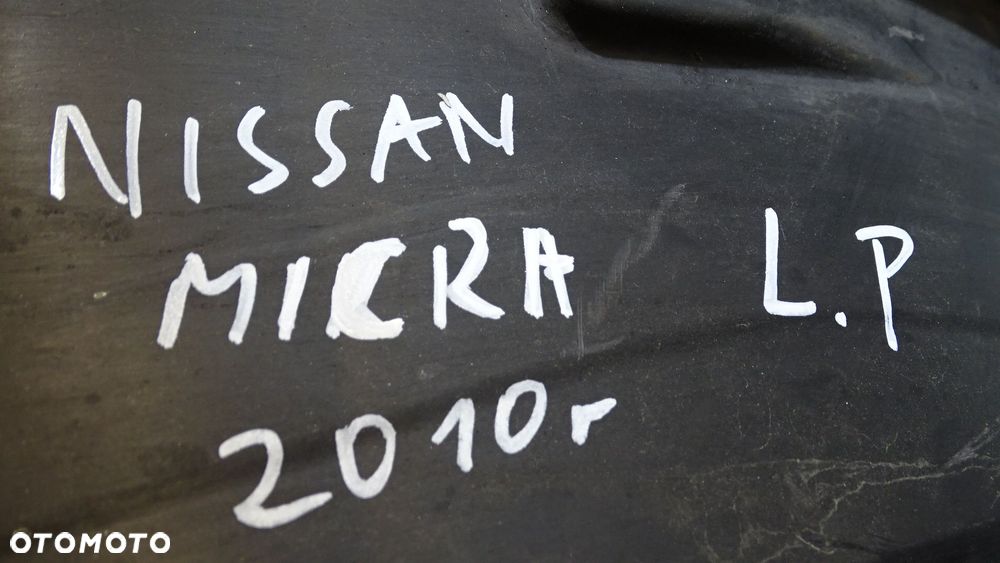 NISSAN
MICRA L.P
2010r
OTOMOTO